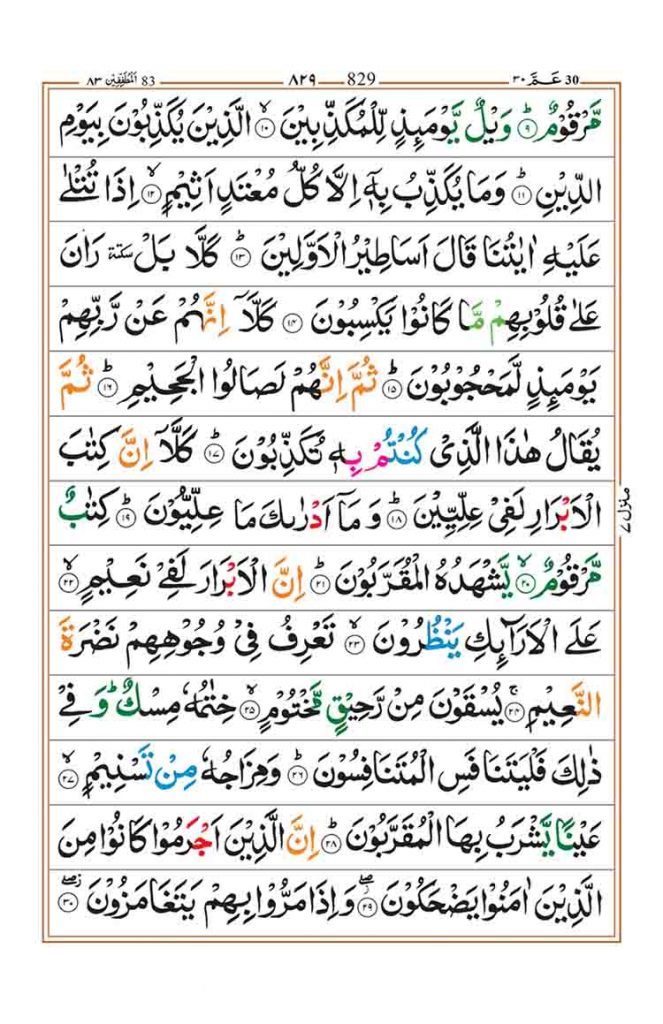 اَلْمُطَفِّفِيْن ٨٣ 83 ٨٢٩ 829 عَمَّ ٣٠ 30
مَّرْقُوْمٌ ؕ‏ ﴿۹﴾ وَيْلٌ يَّوْمَٮِٕذٍ لِّلْمُكَذِّبِيْنَ ۙ‏ ﴿۱۰﴾ الَّذِيْنَ يُكَذِّبُوْنَ بِيَوْمِ
الدِّيْنِ ؕ‏ ﴿۱۱﴾ وَمَا يُكَذِّبُ بِهٖۤ اِلَّا كُلُّ مُعْتَدٍ اَثِيْمٍ ۙ‏ ﴿۱۲﴾ اِذَا تُتْلٰى
عَلَيْهِ اٰيٰتُنَا قَالَ اَسَاطِيْرُ الْاَوَّلِيْنَ ؕ‏ ﴿۱۳﴾ كَلَّا بَلْ سكتة رَانَ
عَلٰى قُلُوْبِهِمْ مَّا كَانُوْا يَكْسِبُوْنَ ﴿۱۴﴾ كَلَّاۤ اِنَّهُمْ عَنْ رَّبِّهِمْ
يَوْمَٮِٕذٍ لَّمَحْجُوْبُوْنَ ؕ‏ ﴿۱۵﴾ ثُمَّ اِنَّهُمْ لَصَالُوا الْجَحِيْمِ ؕ‏ ﴿۱۶﴾ ثُمَّ
يُقَالُ هٰذَا الَّذِىْ كُنْتُمْ بِهٖ تُكَذِّبُوْنَ ؕ‏ ﴿۱۷﴾ كَلَّاۤ اِنَّ كِتٰبَ
الْاَبْرَارِ لَفِىْ عِلِّيِّيْنَ ؕ‏ ﴿۱۸﴾ وَمَاۤ اَدْرٰٮكَ مَا عِلِّيُّوْنَ ؕ‏ ﴿۱۹﴾ كِتٰبٌ
مَّرْقُوْمٌ ۙ‏ ﴿۲۰﴾ يَّشْهَدُهُ الْمُقَرَّبُوْنَ ؕ‏ ﴿۲۱﴾ اِنَّ الْاَبْرَارَ لَفِىْ نَعِيْمٍ ۙ‏ ﴿۲۲﴾
عَلَى الْاَرَآٮِٕكِ يَنْظُرُوْنَ ۙ‏ ﴿۲۳﴾ تَعْرِفُ فِىْ وُجُوْهِهِمْ نَضْرَةَ
النَّعِيْمِ ۚ‏ ﴿۲۴﴾ يُسْقَوْنَ مِنْ رَّحِيْقٍ مَّخْتُوْمٍ ۙ‏ ﴿۲۵﴾ خِتٰمُهٗ مِسْكٌ ؕ وَفِىْ
ذٰلِكَ فَلْيَتَنَافَسِ الْمُتَنَافِسُوْنَ ؕ‏ ﴿۲۶﴾ وَمِزَاجُهٗ مِنْ تَسْنِيْمٍ ۙ‏ ﴿۲۷﴾
عَيْنًا يَّشْرَبُ بِهَا الْمُقَرَّبُوْنَ ؕ‏ ﴿۲۸﴾ اِنَّ الَّذِيْنَ اَجْرَمُوْا كَانُوْا مِنَ
الَّذِيْنَ اٰمَنُوْا يَضْحَكُوْنَ ۖ‏ ﴿۲۹﴾ وَاِذَا مَرُّوْا بِهِمْ يَتَغَامَزُوْنَ ۖ‏ ﴿۳۰﴾
منزل ٧